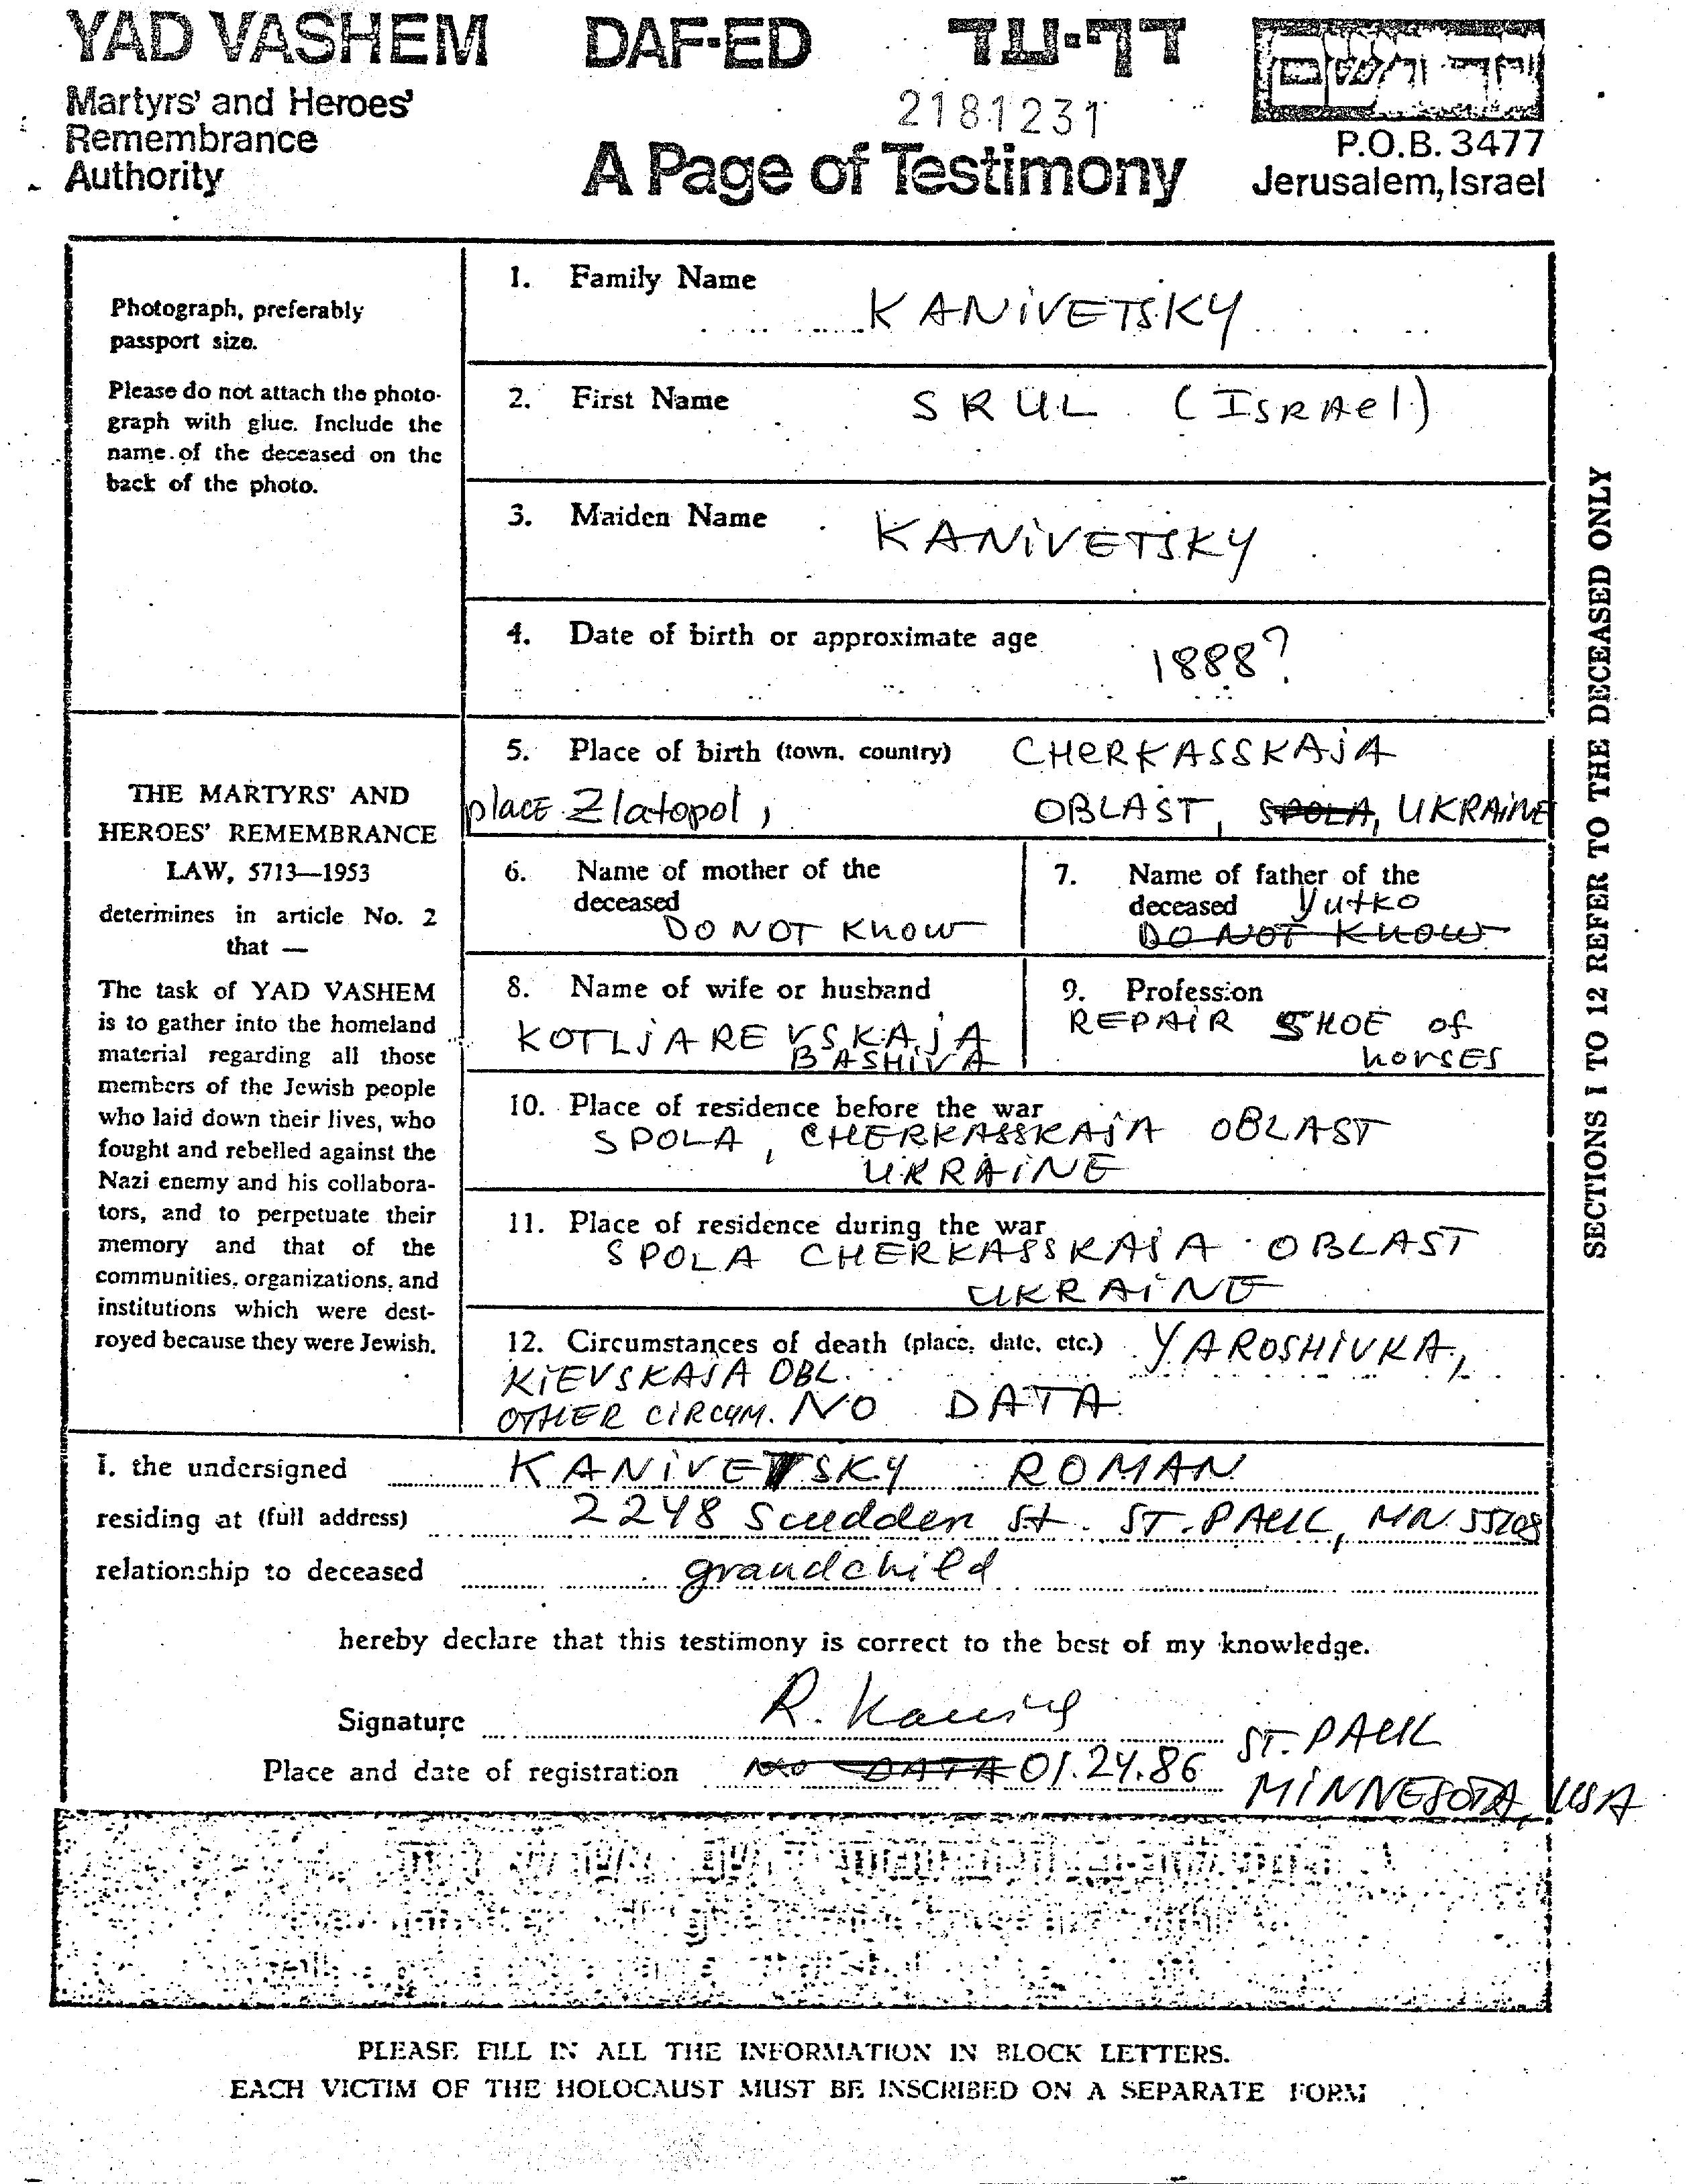 YAD VASHEM DAF-ED דף-עד
Martyrs' and Heroes'
Remembrance
Authority
2181231
A Page of Testimony
יד ושם
P.O.B. 3477
Jerusalem, Israel
Photograph, preferably
passport size.
Please do not attach the photo-
graph with glue. Include the
name of the deceased on the
back of the photo.
THE MARTYRS' AND
HEROES' REMEMBRANCE
LAW, 5713—1953
determines in article No. 2
that —
The task of YAD VASHEM
is to gather into the homeland
material regarding all those
members of the Jewish people
who laid down their lives, who
fought and rebelled against the
Nazi enemy and his collabora-
tors, and to perpetuate their
memory and that of the
communities, organizations, and
institutions which were dest-
royed because they were Jewish.
1. Family Name
KANIVETSKY
2. First Name SRUL (ISRAel)
3. Maiden Name
KANIVETSKY
4. Date of birth or approximate age
1888?
5. Place of birth (town, country) CHERKASSKAJA
place Zlatopol, OBLAST, SPOLA, UKRAINE
6. Name of mother of the
deceased
DO NOT KNOW
7. Name of father of the
deceased Yutko
DO NOT KNOW
8. Name of wife or husband
KOTLJAREVSKAJA
BASHIVA
9. Profession
REPAIR SHOE of
horses
10. Place of residence before the war
SPOLA, CHERKASSKAJA OBLAST
UKRAINE
11. Place of residence during the war
SPOLA CHERKASSKAJA OBLAST
UKRAINE
12. Circumstances of death (place, date, etc.) YAROSHIVKA,
KIEVSKAJA OBL.
OTHER CIRCUM. NO DATA
SECTIONS 1 TO 12 REFER TO THE DECEASED ONLY
I, the undersigned KANIVETSKY ROMAN
residing at (full address) 2248 Scudden St. ST. PAUL, MN. 55108
relationship to deceased grandchild
hereby declare that this testimony is correct to the best of my knowledge.
Signature R. Kaniv
Place and date of registration NO DATA 01.24.86 ST. PAUL
MINNESOTA, USA
PLEASE FILL IN ALL THE INFORMATION IN BLOCK LETTERS.
EACH VICTIM OF THE HOLOCAUST MUST BE INSCRIBED ON A SEPARATE FORM